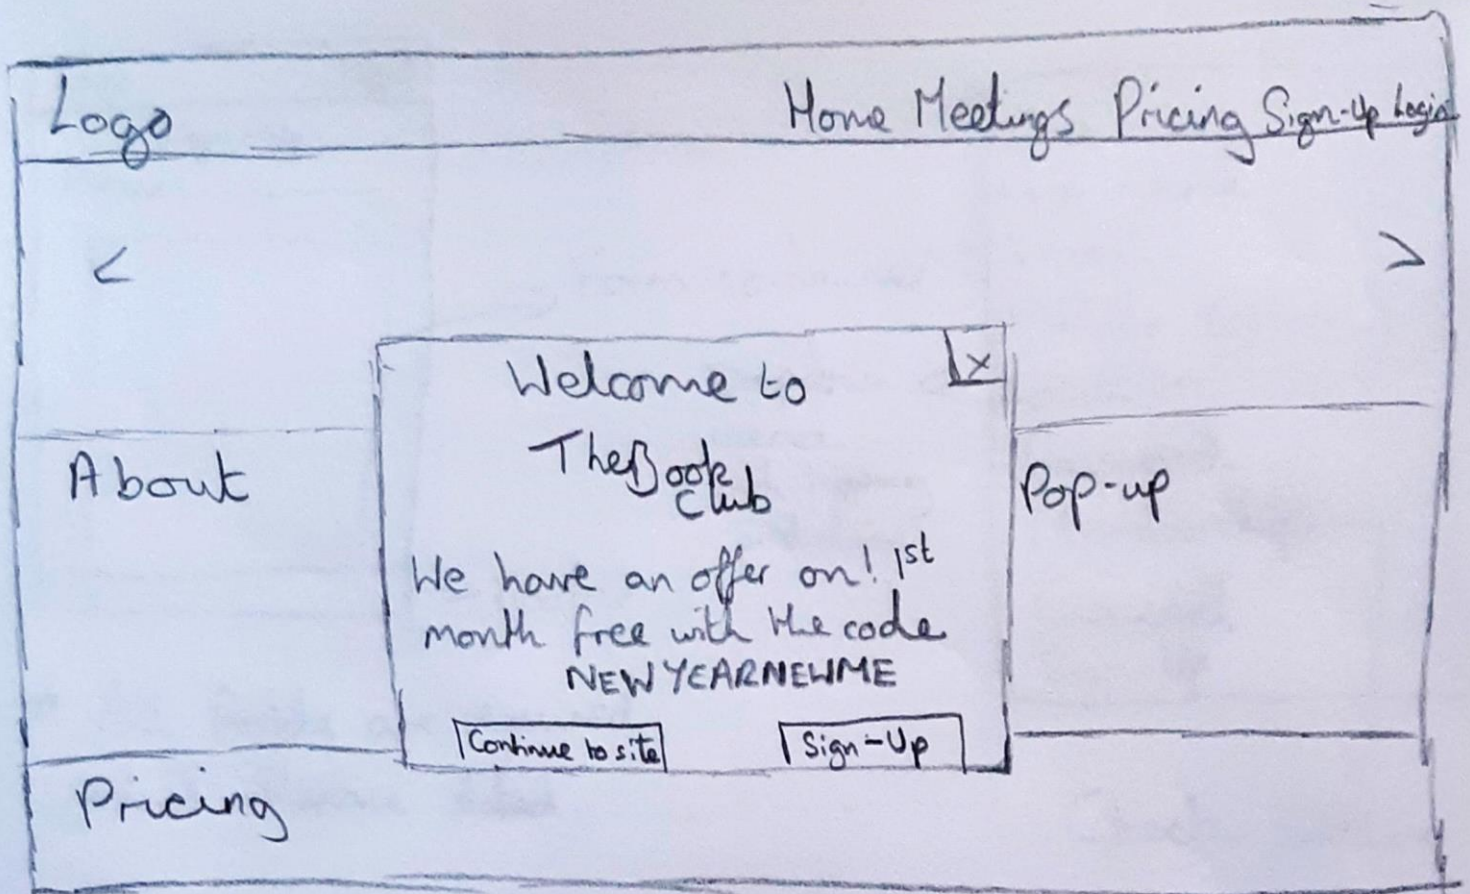 Logo
Home Meetings Pricing Sign-Up Login
<
>
Welcome to
X
The Book
Club
About
Pop-up
We have an offer on! 1st
month free with the code
NEWYEARNEWME
Continue to site
Sign-Up
Pricing